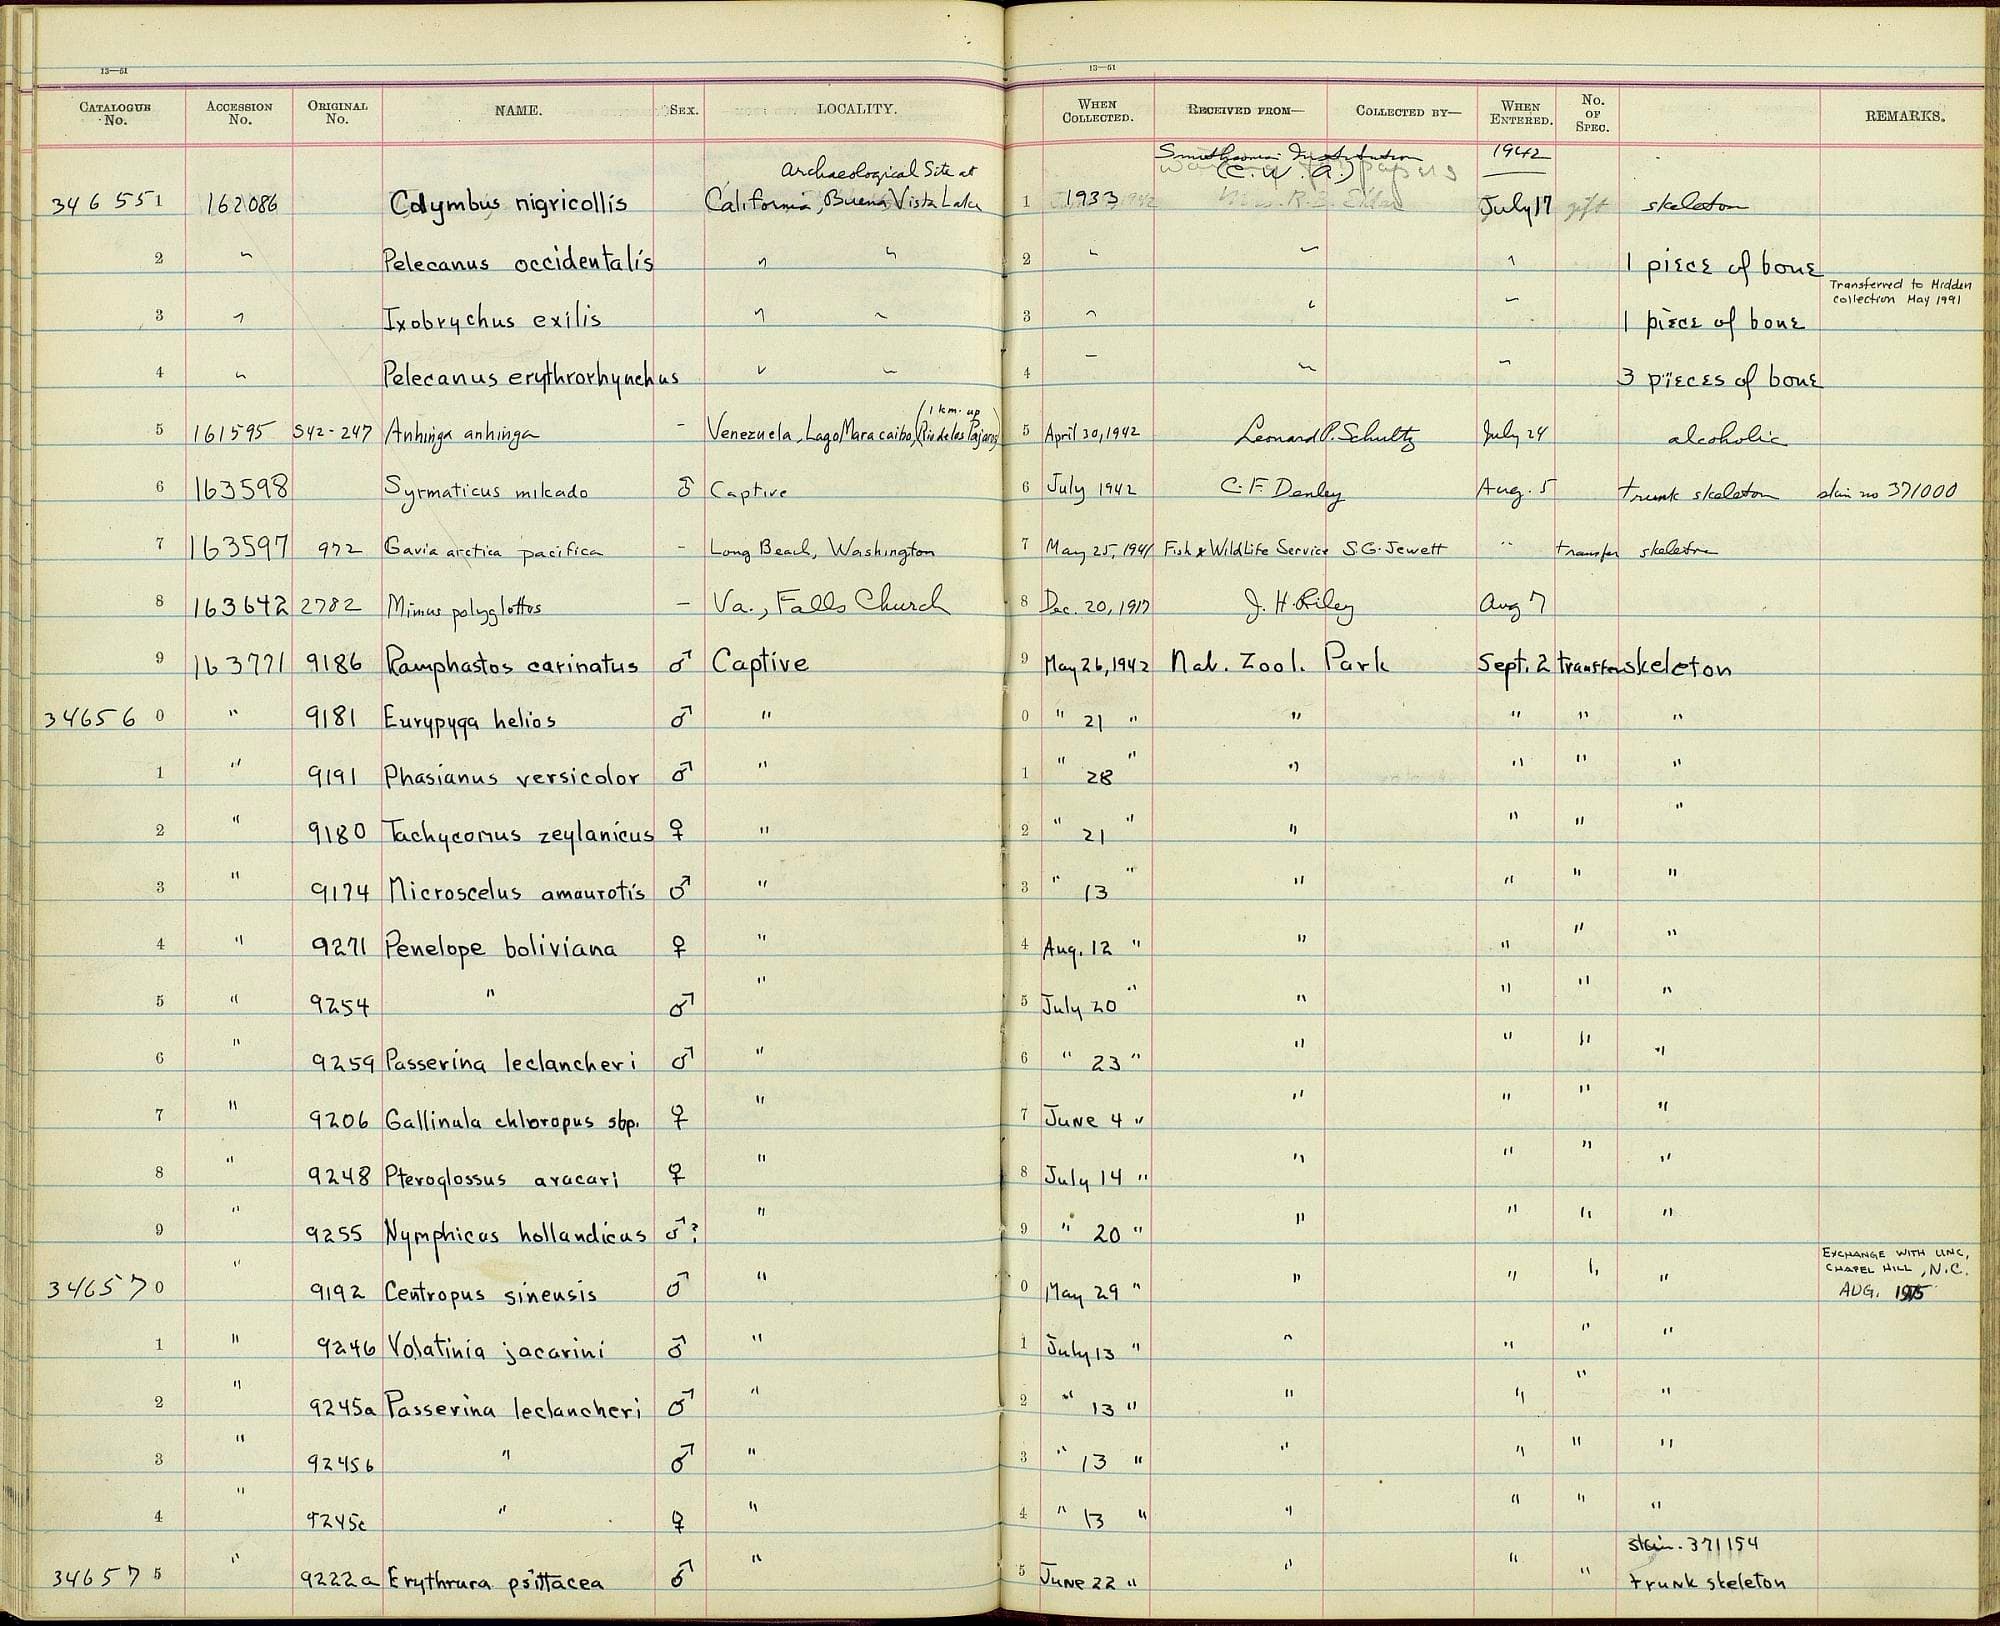 13—61 13—61
CATALOGUE No. ACCESSION No. ORIGINAL No. NAME. SEX. LOCALITY. WHEN COLLECTED. RECEIVED FROM— COLLECTED BY— WHEN ENTERED. No. OF SPEC. REMARKS.
Smithsonian Institution 1942
Archaeological Site at (C.W.A.)
346551 162086 Colymbus nigricollis California, Buena Vista Lake 1 1933 July 17 gift skeleton
2 " Pelecanus occidentalis " " 2 " " " 1 piece of bone
Transferred to Midden
collection May 1991
3 " Ixobrychus exilis " " 3 " " " 1 piece of bone
4 " Pelecanus erythrorhynchus " " 4 " " " 3 pieces of bone
(1 km. up
5 161595 S42-247 Anhinga anhinga - Venezuela, Lago Maracaibo, Rio de los Pajaros) 5 April 30, 1942 Leonard P. Schultz July 24 alcoholic
6 163598 Syrmaticus mikado ♂ Captive 6 July 1942 C. F. Denley Aug. 5 trunk skeleton skin no 371000
7 163597 972 Gavia arctica pacifica - Long Beach, Washington 7 May 25, 1941 Fish & Wildlife Service S. G. Jewett " transfer skeleton
8 163642 2782 Mimus polyglottos - Va., Falls Church 8 Dec. 20, 1917 J. H. Riley Aug 7
9 163771 9186 Ramphastos carinatus ♂ Captive 9 May 26, 1942 Nat. Zool. Park Sept. 2 transfer skeleton
346560 " 9181 Eurypyga helios ♂ " 0 " 21 " " " " "
1 " 9191 Phasianus versicolor ♂ " 1 " 28 " " " " "
2 " 9180 Tachycomus zeylanicus ♀ " 2 " 21 " " " " "
3 " 9174 Microscelus amaurotis ♂ " 3 " 13 " " " " "
4 " 9271 Penelope boliviana ♀ " 4 Aug. 12 " " " " "
5 " 9254 " ♂ " 5 July 20 " " " " "
6 " 9259 Passerina leclancheri ♂ " 6 " 23 " " " " "
7 " 9206 Gallinula chloropus sbp. ♀ " 7 June 4 " " " " "
8 " 9248 Pteroglossus aracari ♀ " 8 July 14 " " " " "
9 " 9255 Nymphicus hollandicus ♂? " 9 " 20 " " " " "
EXCHANGE WITH UNC,
CHAPEL HILL, N.C.
346570 " 9192 Centropus sinensis ♂ " 0 May 29 " " " " " AUG. 1975
1 " 9246 Volatinia jacarini ♂ " 1 July 13 " " " " "
2 " 9245a Passerina leclancheri ♂ " 2 " 13 " " " " "
3 " 9245b " ♂ " 3 " 13 " " " " "
4 " 9245c " ♀ " 4 " 13 " " " " "
skin. 371154
346575 " 9222a Erythrura psittacea ♂ " 5 June 22 " " " " trunk skeleton